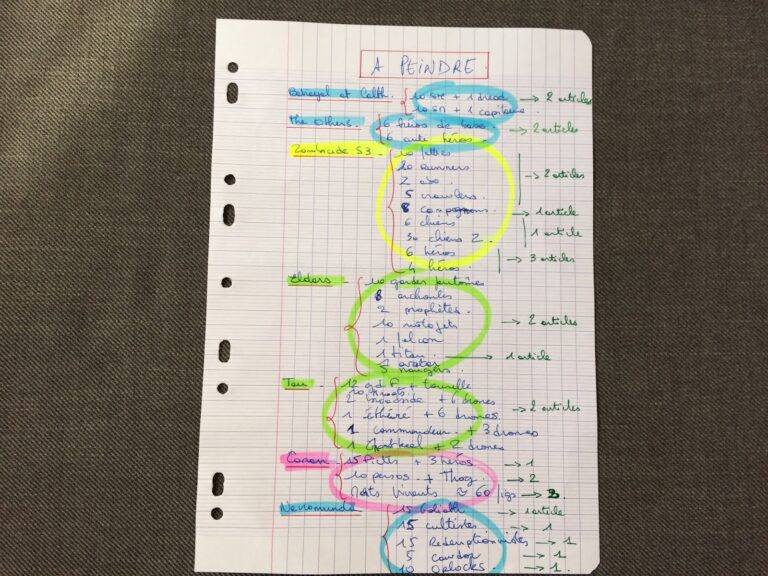 A PEINDRE.
Betrayal at Calth. 10 SM + 1 dread → 2 articles
10 SM + 1 capitaine
The Others. 6 héros de base. → 2 articles
6 héros.
Zombicide S3 - 10 fatties
20 runners → 2 articles
2 abo.
5 crawlers.
8 compagnons. → 1 article
6 chiens
30 chiens Z. 1 article
6 héros → 3 articles
4 héros.
Eldars - 10 gardes fantômes
8 archontes
2 prophètes.
10 motojets → 2 articles
1 falcon
1 titan. → 1 article
1 avatar
5 rangers.
Tau - 12 gd F + tourelle
10 kroots
2 broadside + 6 drones → 2 articles
1 Éthéré + 6 drones.
1 commandeur + 3 drones
1 + 2 drones
Conan - 15 Pictes + 3 héros → 1
10 persos + Thog → 2
Morts Vivants ≈ 60 figs → 3.
Necromunda - 15 Goliath → 1 article
15 cultistes → 1
15 Redemptionnistes → 1
5 cawdor → 1
10 Orlocks. → 1